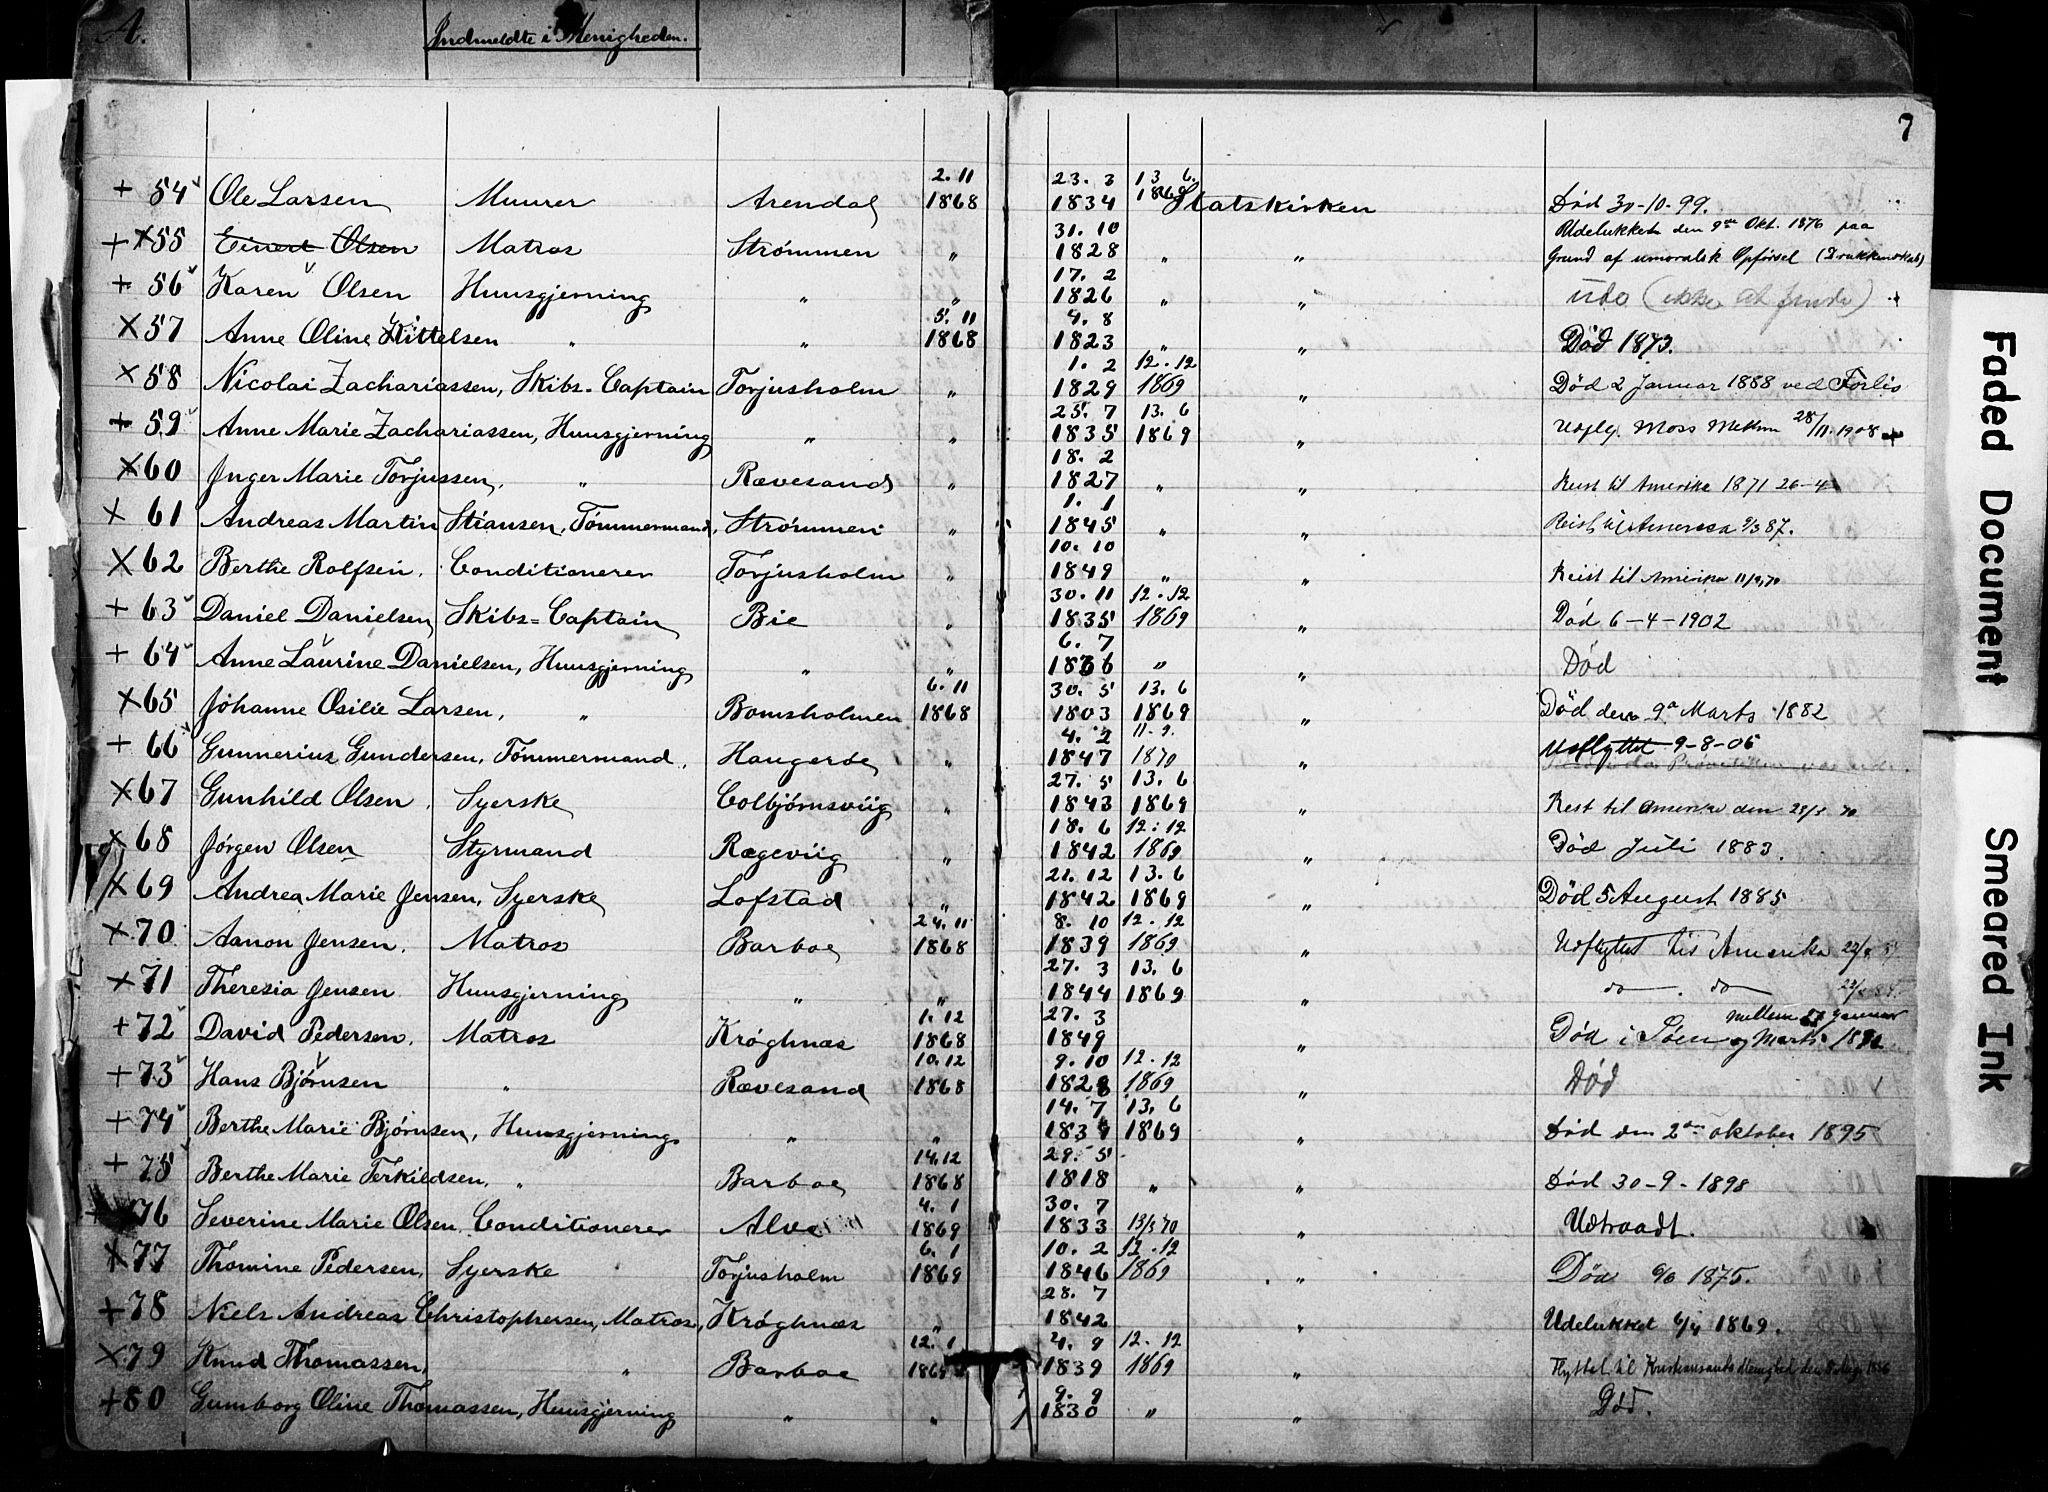 A. Indmeldte i Menigheden.
7
+ 54 Ole Larsen Muurer Arendal 2. 11 1868 23. 3 1834 13 6. 1869 Statskirken Død 30-10-99.
+ X 55 Einert Olsen Matros Strømmen " 31. 10 1828 " " Udelukket den 9de Okt. 1876 paa
Grund af umoralsk Opførsel (Drukkenskab)
+ 56 Karen Olsen Huusgjerning " " 17. 2 1826 " " Udo (ikke at finde) +
X 57 Anne Oline Kittelsen " " 5. 11 1868 4. 8 1823 " " Død 1873.
X 58 Nicolai Zachariassen, Skibs-Captain Torjusholm " 1. 2 1829 12. 12 1869 " Død 2 Januar 1888 ved Forlis
+ 59 Anne Marie Zachariassen, Huusgjerning " " 25. 7 1835 13. 6 1869 " Udflg. Moss 28/11. 1908 +
X 60 Inger Marie Torjussen, " Rævesand " 18. 2 1827 " " Reist til Amerika 1871 26-4
X 61 Andreas Martin Stiansen, Tømmermand, Strømmen " 1. 1 1845 " " Reist til America 9/3 87.
X 62 Berthe Rolfsen. Conditionerer Torjusholm " 10. 10 1849 " " Reist til Amerika
+ 63 Daniel Danielsen, Skibs=Captain Bie " 30. 11 1835 12. 12 1869 " Død 6-4-1902
+ 64 Anne Laurine Danielsen, Huusgjerning " " 6. 7 1836 " " Død
X 65 Johanne Osilie Larsen, " Bomsholmen 6. 11 1868 30. 5 1803 13. 6 1869 " Død den 9de Marts 1882
+ 66 Gunnerius Gundersen, Tømmermand, Haugerøe " 4. 2 1847 11. 9. 1870 " Udflyttet 9-8-05
X 67 Gunhild Olsen, Syerske Colbjørnsviig " 27. 5 1843 13. 6 1869 " Rest til Amerika den
X 68 Jørgen Olsen Styrmand Rægeviig " 18. 6 1842 12. 12 1869 " Død Juli 1883.
X 69 Andrea Marie Jensen, Syerske Lofstad " 21. 12 1842 13. 6 1869 " Død 5 August 1885
X 70 Aanon Jensen, Matros Barboe 24. 11 1868 8. 10 1839 12. 12 1869 " Udflyttet til Amerika
X 71 Theresia Jensen Huusgjerning " " 27. 3 1844 13. 6 1869 " do . do
+ 72 David Pedersen. Matros Krøghnæs 1. 12 1868 27. 3 1849 " Død i Søen mellem Januar og Marts
+ 73 Hans Bjørnsen " Rævesand 10. 12 1868 9. 10 1828 12. 12 1869 " Død
+ 74 Berthe Marie Bjørnsen, Huusgjerning " " 14. 7 1839 13. 6 1869 " Død den 2den oktober 1895
+ 75 Berthe Marie Terkildsen, " Barboe 14. 12 1868 29. 5 1818 " " Død 30-9-1898
+ 76 Severine Marie Olsen, Conditionerer Alve 4. 1 1869 30. 7 1833 13/3 70 " Udtraadt.
X 77 Thomine Pedersen, Syerske Torjusholm 6. 1 1869 10. 2 1846 12. 12 1869 " Død 1875.
+ 78 Niels Andreas Christophersen, Matros, Krøghnæs " 28. 7 1842 " Udelukket 1869.
X 79 Knud Thomassen, " Barboe 12. 1 1869 4. 9 1839 12. 12 1869 " Flyttet til Kristiansands Menighed den
+ 80 Gunborg Oline Thomassen, Huusgjerning " " 9. 9 1830 " " Død.
Faded Document
Smeared Ink